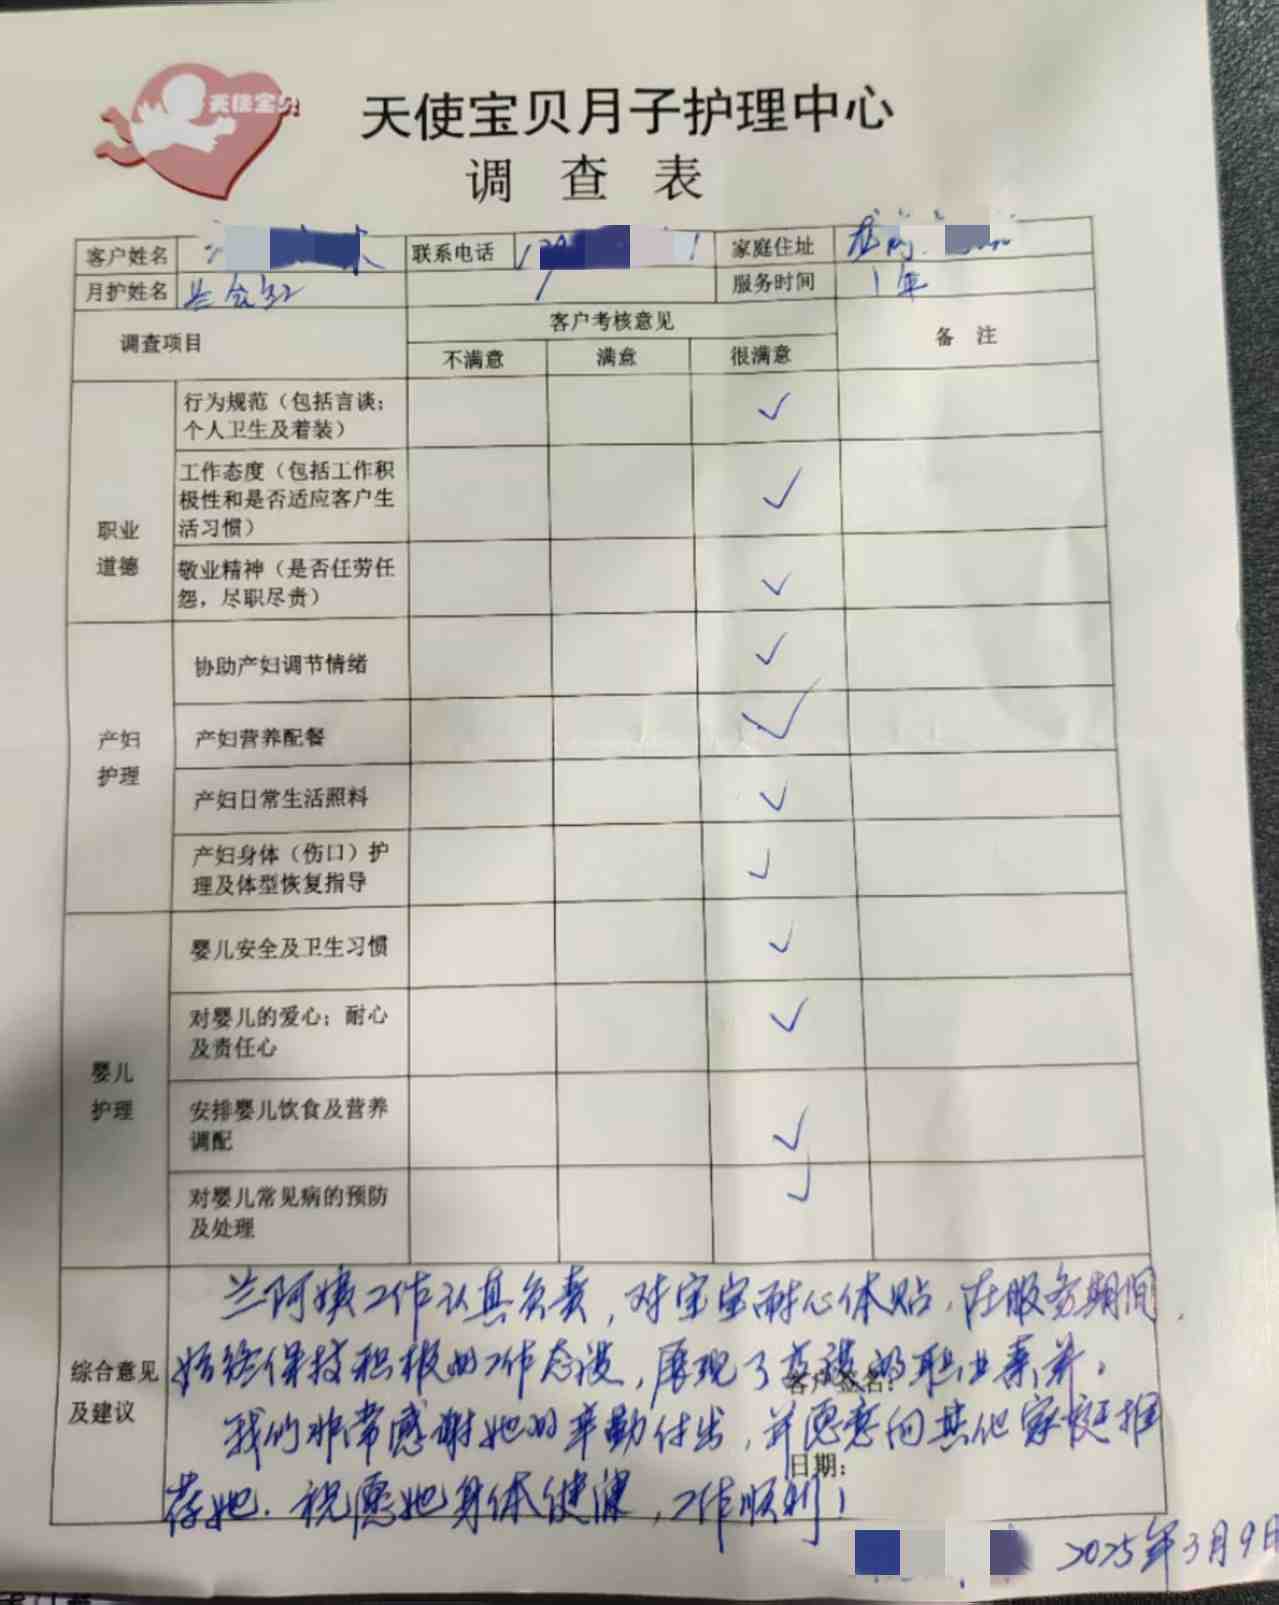 天使宝贝
天使宝贝月子护理中心
调 查 表
客户姓名 联系电话 家庭住址
月护姓名 兰会 服务时间 1年
调查项目 客户考核意见 备 注
不满意 满意 很满意
职业
道德
行为规范（包括言谈；
个人卫生及着装）
工作态度（包括工作积
极性和是否适应客户生
活习惯）
敬业精神（是否任劳任
怨，尽职尽责）
产妇
护理
协助产妇调节情绪
产妇营养配餐
产妇日常生活照料
产妇身体（伤口）护
理及体型恢复指导
婴儿
护理
婴儿安全及卫生习惯
对婴儿的爱心；耐心
及责任心
安排婴儿饮食及营养
调配
对婴儿常见病的预防
及处理
综合意见
及建议
兰阿姨工作认真负责，对宝宝耐心体贴，在服务期间，
始终保持积极的工作态度，展现了高度的职业素养。
客户签名：
我们非常感谢她的辛勤付出，并愿意向其他家庭推
日期：
荐她．祝愿她身体健康，工作顺利！
2025年3月9日